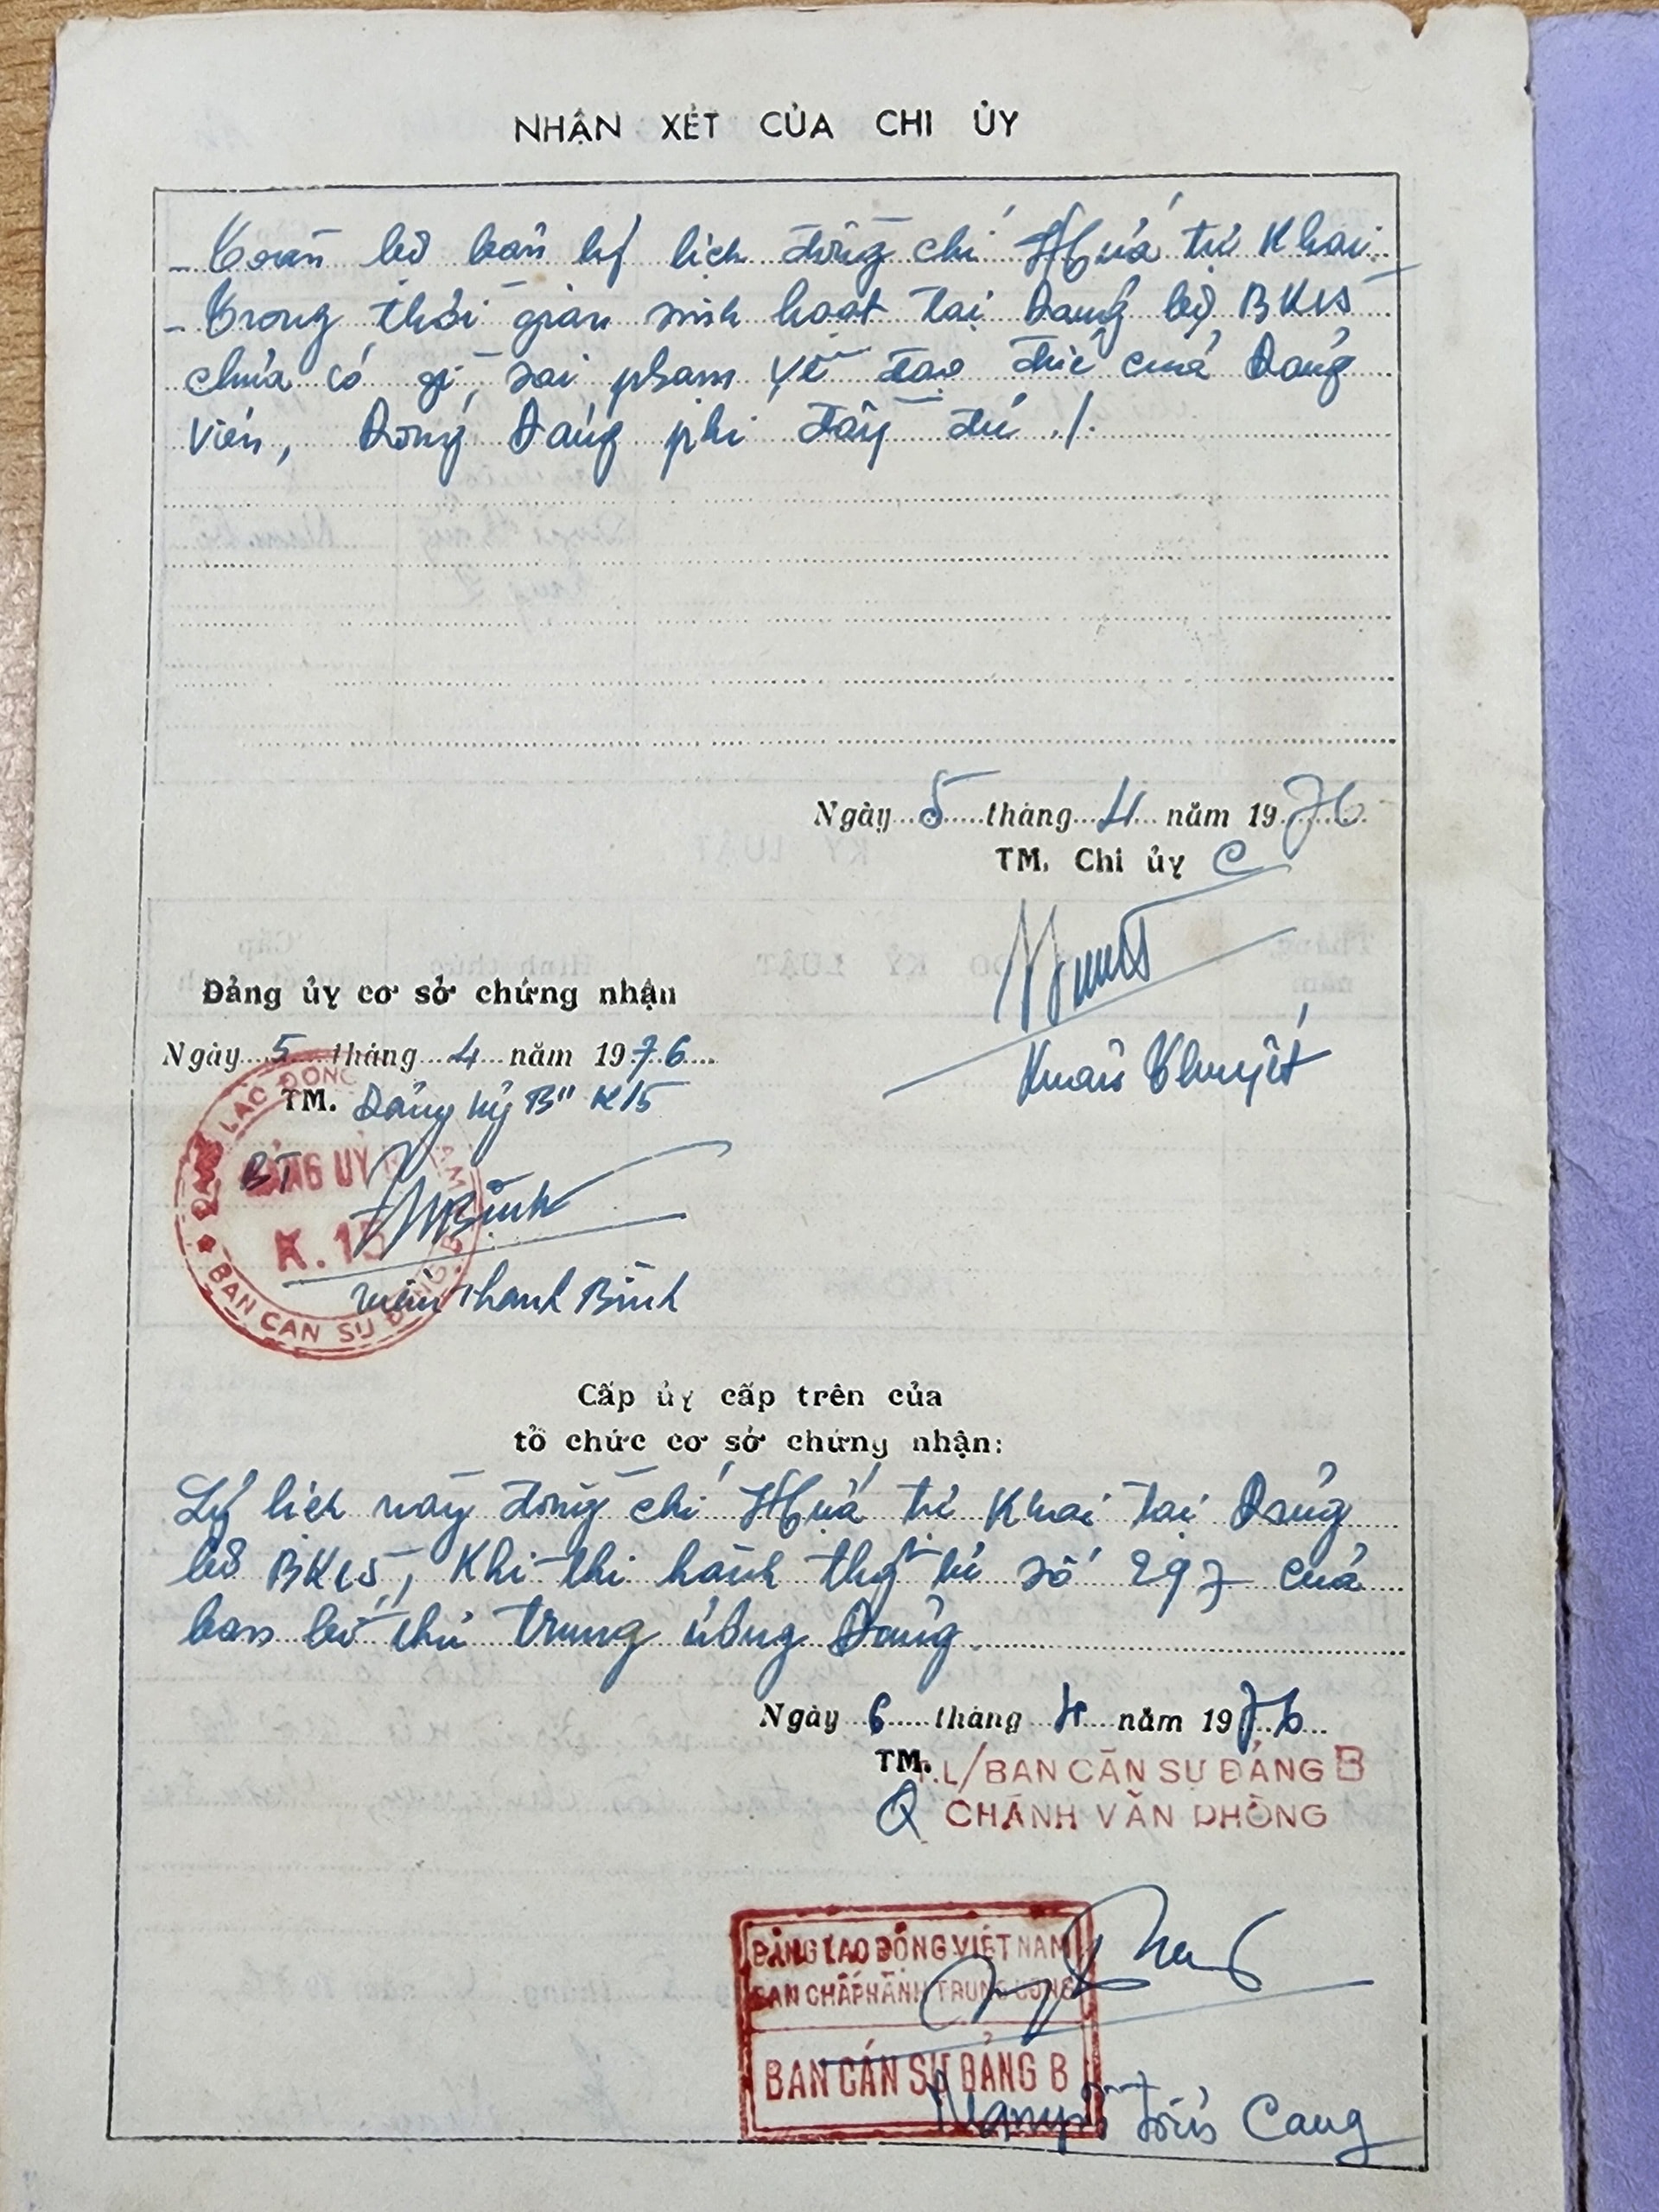 NHẬN XÉT CỦA CHI ỦY
- Toàn bộ bản lý lịch đồng chí Hứa tự Khai.
- Trong thời gian sinh hoạt tại Đảng bộ BK15
chưa có gì, sai phạm về đạo đức của Đảng
viên, Đóng Đảng phí đầy đủ ./.
Ngày 5 tháng 4 năm 1976
TM. Chi ủy C
Xuân Thuyết
Đảng ủy cơ sở chứng nhận
Ngày 5 tháng 4 năm 1976
TM. Đảng ủy B" K15
BT
ĐẢNG LAO ĐỘNG NAM
ĐẢNG ỦY
K.15
BAN CÁN SỰ ĐẢNG B
Thanh Bình
Cấp ủy cấp trên của
tổ chức cơ sở chứng nhận:
Lý lịch này đồng chí Hứa tự Khai tại Đảng
bộ BK15, Khi thi hành thị số 297 của
ban bí thư trung ương Đảng
Ngày 6 tháng 4 năm 1976
TM. T.L/BAN CÁN SỰ ĐẢNG B
Q CHÁNH VĂN PHÒNG
ĐẢNG LAO ĐỘNG VIỆT NAM
BAN CHẤP HÀNH TRUNG ƯƠNG
BAN CÁN SỰ ĐẢNG B
Nguyễn Cang